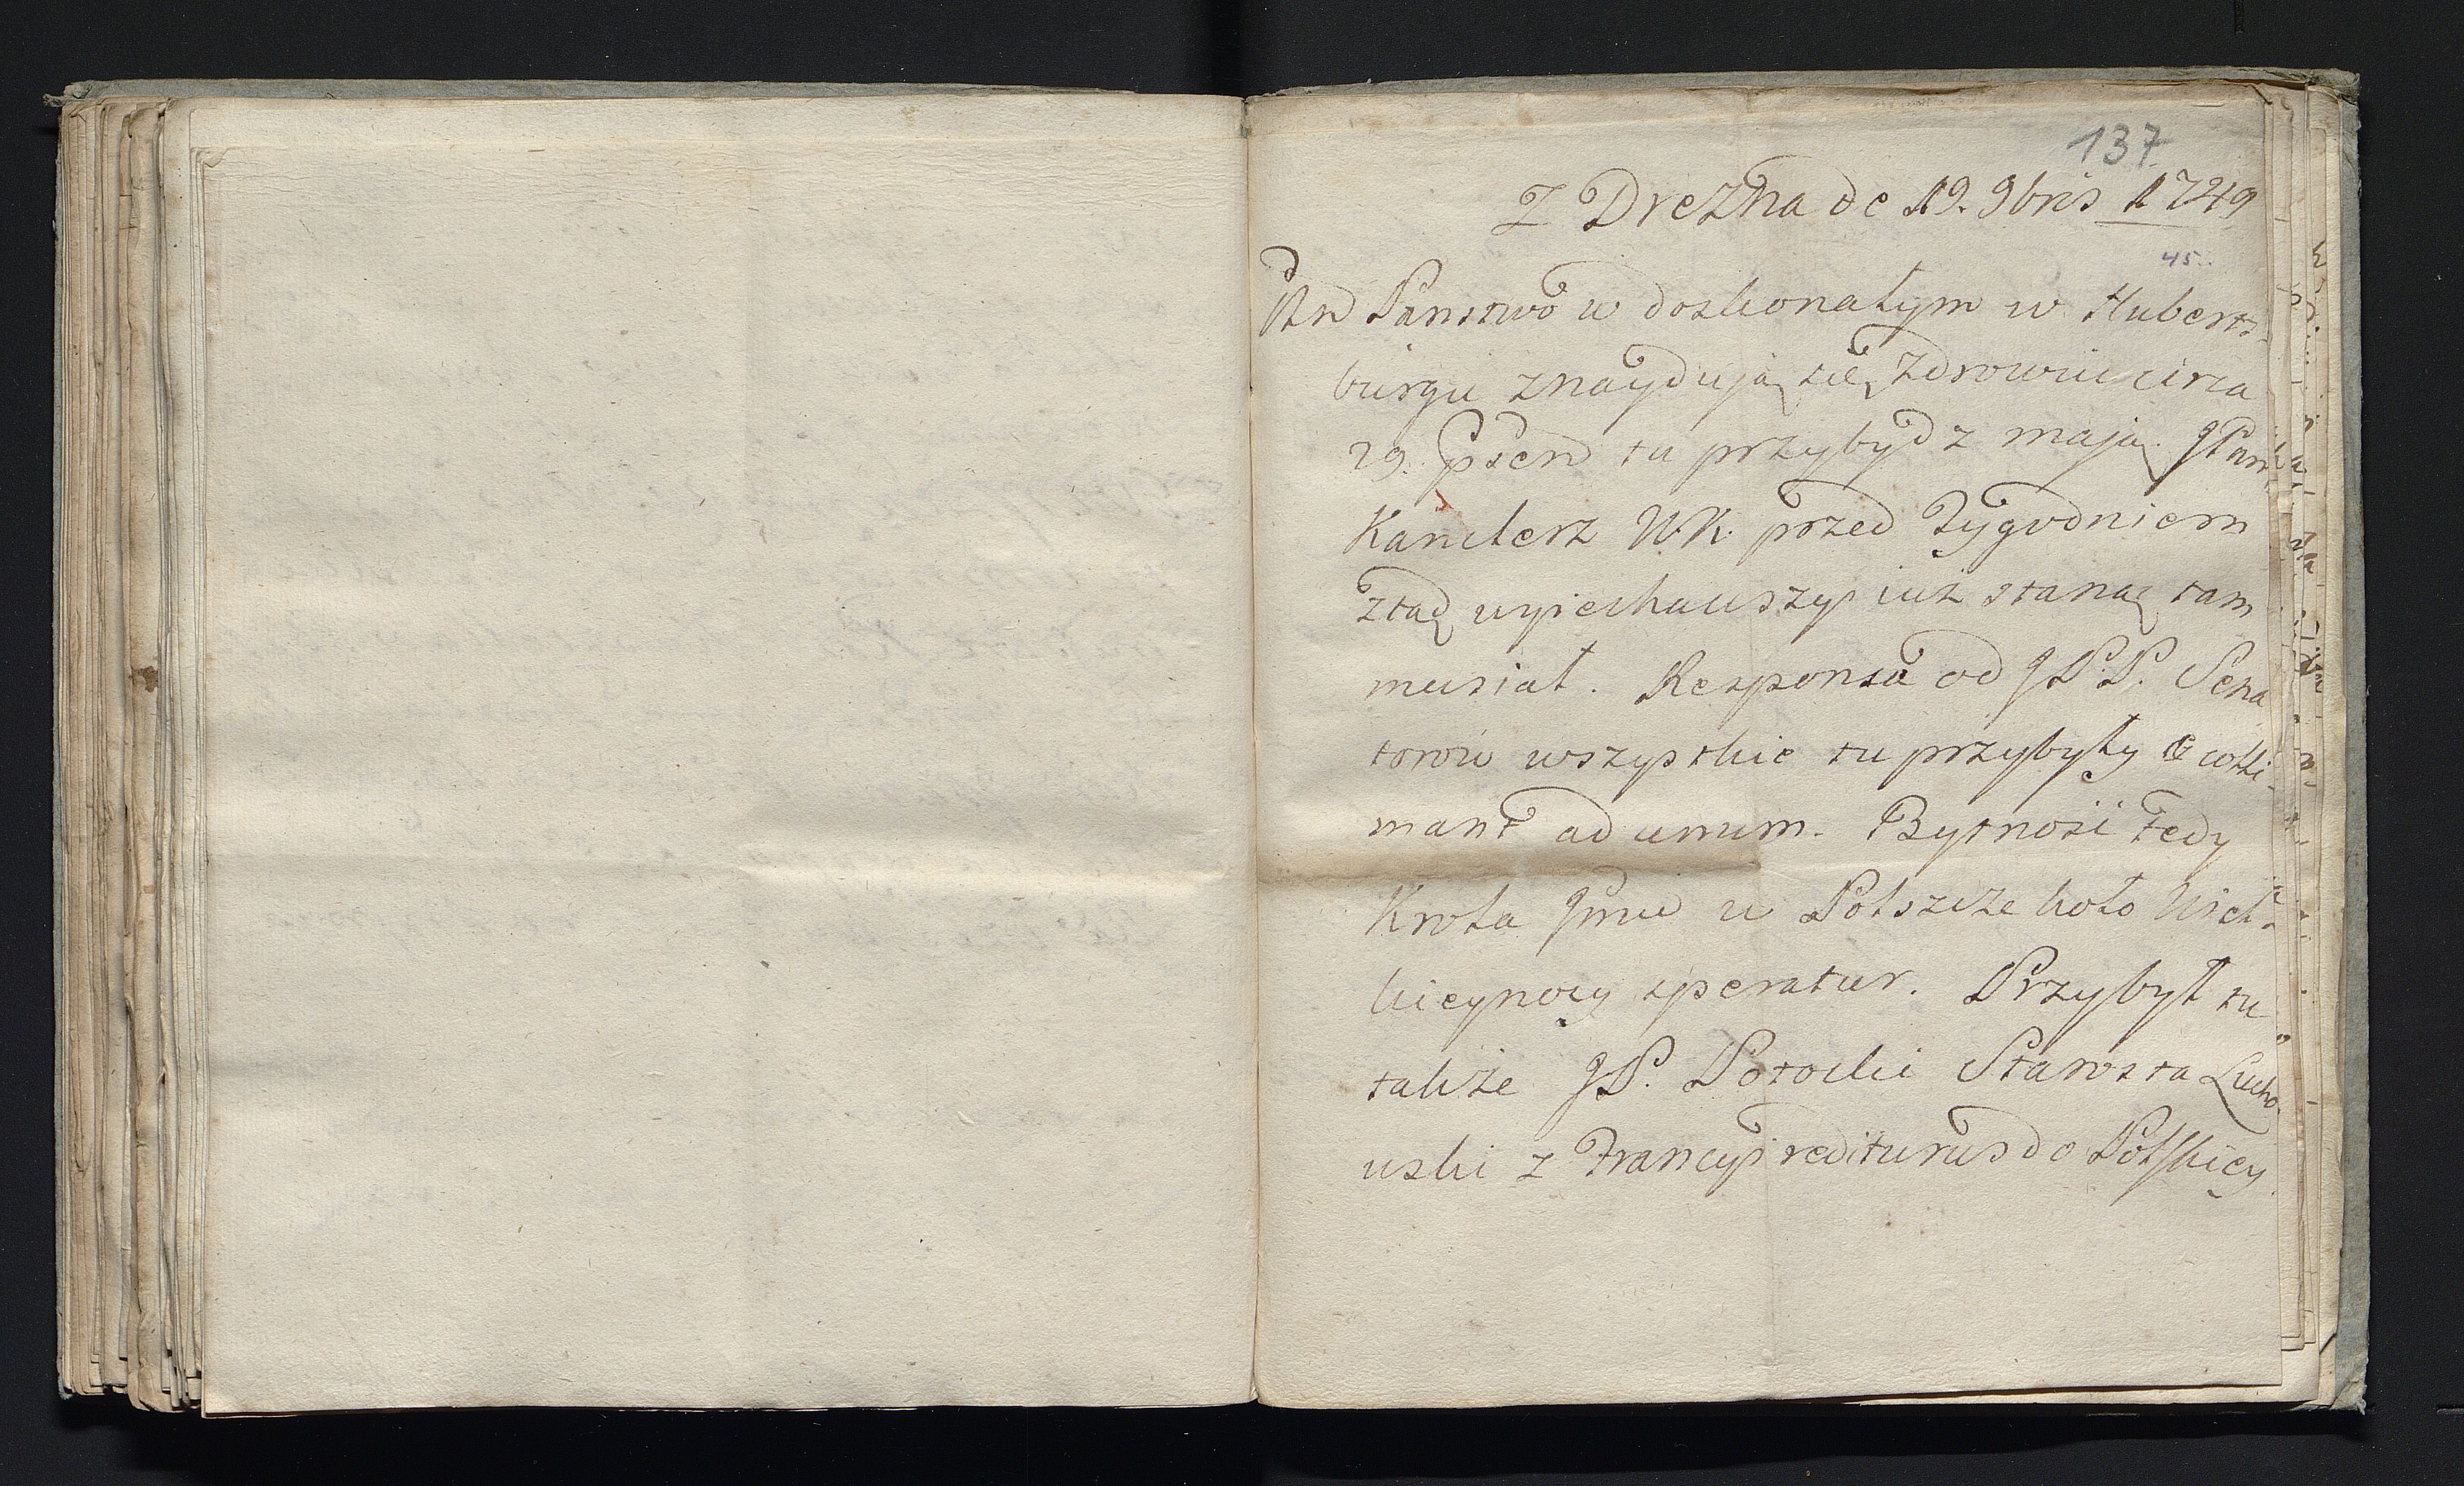 137
Z Drezna de 19. 9bris 1749
45.
Państwo w doskonałym w Huberts-
burgu znaydują się Zdrowiu circa
29. psen tu przybydz mają. JPan
Kanclerz W.K. przed Tygodniem
ztąd wyiechawszy iuż stanąc tam
musiał. Responsa od JPP. Sena
torow wszystkie tu przybyły & colli-
mant ad unum. Bytność tedy
Krola Jmci w Polszcze koło Wiel-
kieynocy speratur. Przybył tu
także JP. Potocki Starosta Lucho
wski z Francyi rediturus do Polskiey